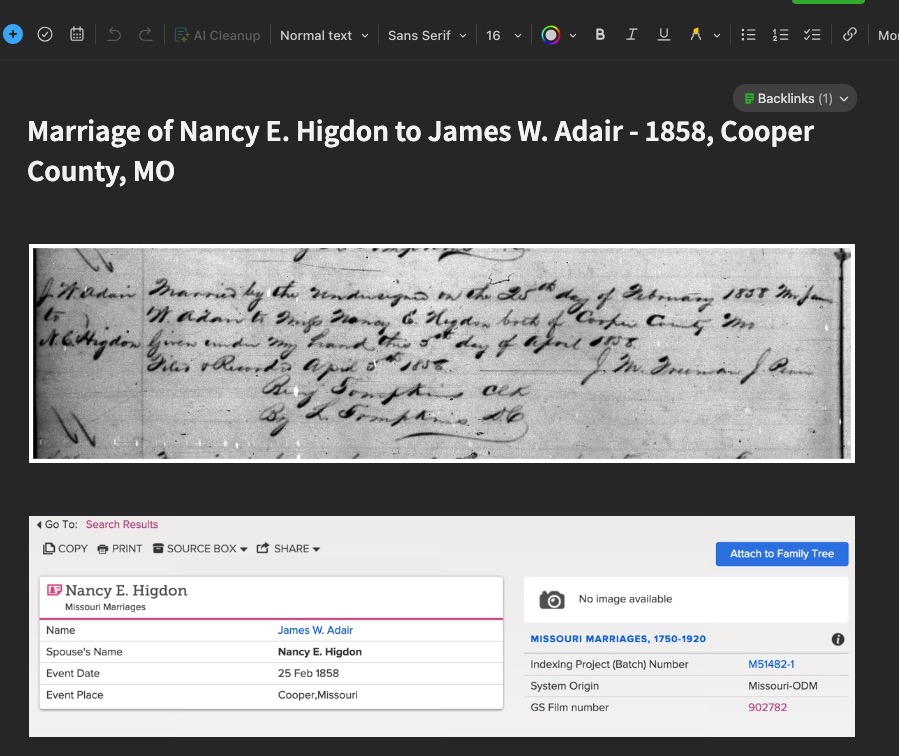 AI Cleanup Normal text Sans Serif 16 B I U Mor
Backlinks (1)
Marriage of Nancy E. Higdon to James W. Adair - 1858, Cooper
County, MO
J W Adair Married by the undersigned on the 25th day of February 1858 Mr Jam
to W. Adair to Miss Nancy E. Higdon both of Cooper County Mo
N. E. Higdon Given under my hand this 3rd day of April 1858
Filed & Recorded April 5th 1858. J. M. Freeman J Peace
Benj Tompkins Clk
By L. Tompkins DC
Go To: Search Results
COPY PRINT SOURCE BOX SHARE
Attach to Family Tree
Nancy E. Higdon
Missouri Marriages
Name James W. Adair
Spouse's Name Nancy E. Higdon
Event Date 25 Feb 1858
Event Place Cooper,Missouri
No image available
MISSOURI MARRIAGES, 1750-1920
Indexing Project (Batch) Number M51482-1
System Origin Missouri-ODM
GS Film number 902782